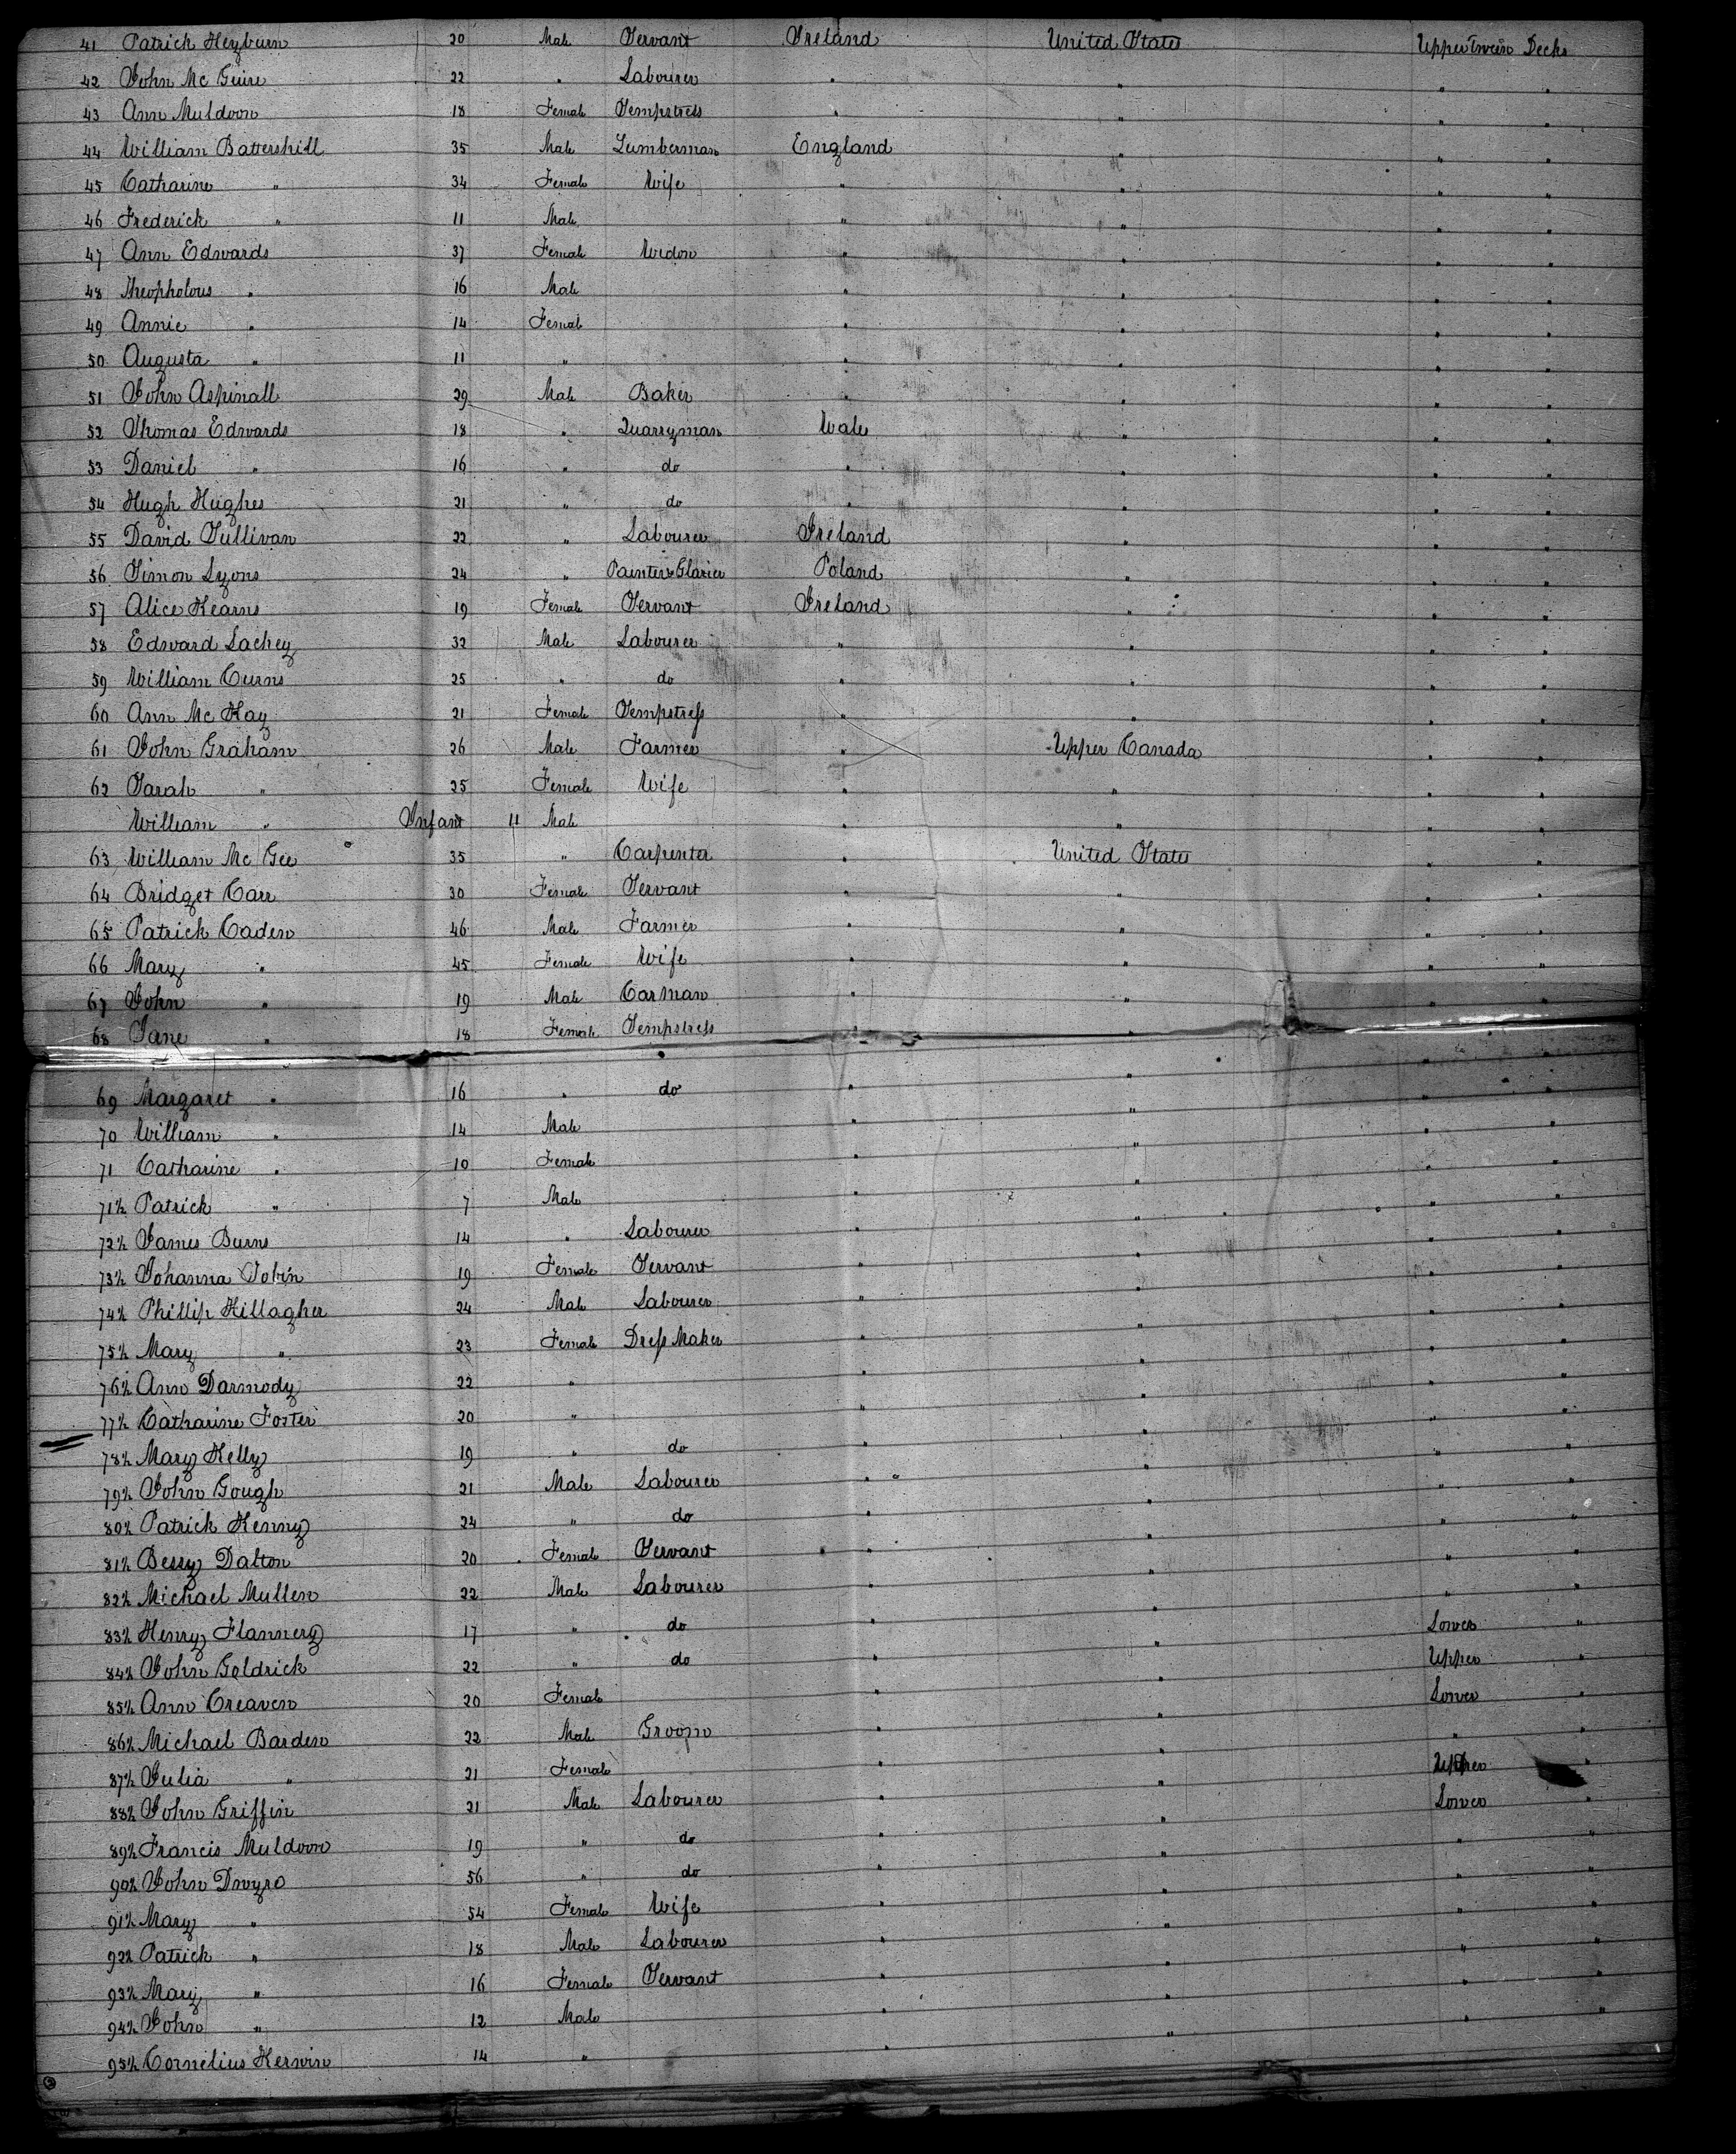 41 Patrick Heyburn 20 Male Servant Ireland United States Upper Tween Decks
42 John Mc Guire 22 " Labourer " " " "
43 Ann Muldoon 18 Female Sempstress " " " "
44 William Battershill 35 Male Lumberman England " " "
45 Catharine " 34 Female Wife " " " "
46 Frederick " 11 Male " " " "
47 Ann Edwards 37 Female Widow " " " "
48 Theopholous " 16 Male " " " "
49 Annie " 14 Female " " " "
50 Augusta " 11 " " " " "
51 John Aspinall 29 Male Baker " " " "
52 Thomas Edwards 18 " Quarryman Wales " " "
53 Daniel " 16 " do " " " "
54 Hugh Hughes 21 " do " " " "
55 David Sullivan 22 " Labourer Ireland " " "
56 Simon Lyons 24 " Painter & Glazier Poland " " "
57 Alice Kearns 19 Female Servant Ireland " " "
58 Edward Lachey 32 Male Labourer " " " "
59 William Curns 25 " do " " " "
60 Ann Mc Kay 21 Female Sempstress " " " "
61 John Graham 26 Male Farmer " Upper Canada " "
62 Sarah " 25 Female Wife " " " "
William " Infant 11 Male " " " "
63 William Mc Gee 35 " Carpenter " United States " "
64 Bridget Carr 30 Female Servant " " " "
65 Patrick Caden 46 Male Farmer " " " "
66 Mary " 45 Female Wife " " " "
67 John " 19 Male Carman " " " "
68 Jane " 18 Female Sempstress " " " "
69 Margaret " 16 " do " " " "
70 William " 14 Male " " " "
71 Catharine " 10 Female " " " "
71½ Patrick " 7 Male " " " "
72½ James Burns 14 " Labourer " " " "
73½ Johanna Tobin 19 Female Servant " " " "
74½ Phillip Killagher 24 Male Labourer " " " "
75½ Mary " 23 Female Dress Maker " " " "
76½ Ann Darmody 22 " " " " "
77½ Catharine Foster 20 " " " " "
78½ Mary Kelly 19 " do " " " "
79½ John Gough 21 Male Labourer " " " "
80½ Patrick Kenny 24 " do " " " "
81½ Bessy Dalton 20 Female Servant " " " "
82½ Michael Mullen 22 Male Labourer " " " "
83½ Henry Flannery 17 " do " " Lower "
84½ John Goldrick 22 " do " " Upper "
85½ Ann Creaven 20 Female " " Lower "
86½ Michael Barden 22 Male Groom " " " "
87½ Julia " 21 Female " " Upper "
88½ John Griffin 21 Male Labourer " " Lower "
89½ Francis Muldoon 19 " do " " " "
90½ John Dwyro 56 " do " " " "
91½ Mary " 54 Female Wife " " " "
92½ Patrick " 18 Male Labourer " " " "
93½ Mary " 16 Female Servant " " " "
94½ John " 12 Male " " " "
95½ Cornelius Kerwin 14 " "